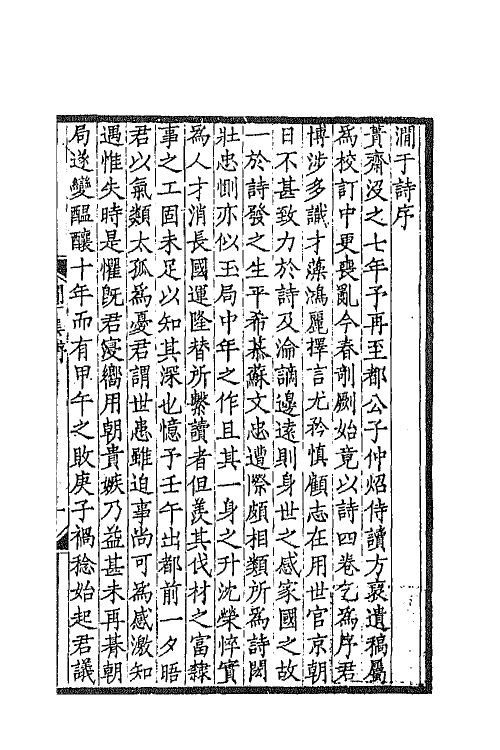 澗于詩序
蕢齋沒之七年予再至都公子仲炤侍讀方裒遺稿屬
爲校訂中更喪亂今春剞劂始竟以詩四卷乞爲序君
博涉多識才藻鴻麗擇言尤矜慎顧志在用世官京朝
日不甚致力於詩及淪謫邊遠則身世之感家國之故
一於詩發之生平希慕蘇文忠遭際頗相類所爲詩閎
壯忠惻亦似玉局中年之作且其一身之升沈榮悴實
爲人才消長國運隆替所繫讀者但羨其伐材之富隸
事之工固未足以知其深也憶予壬午出都前一夕晤
君以氣類太孤爲憂君謂世患雖迫事尚可爲感激知
遇惟失時是懼旣君寖嚮用朝貴嫉乃益甚未再朞朝
局遂變醞釀十年而有甲午之敗庚子禍稔始起君議